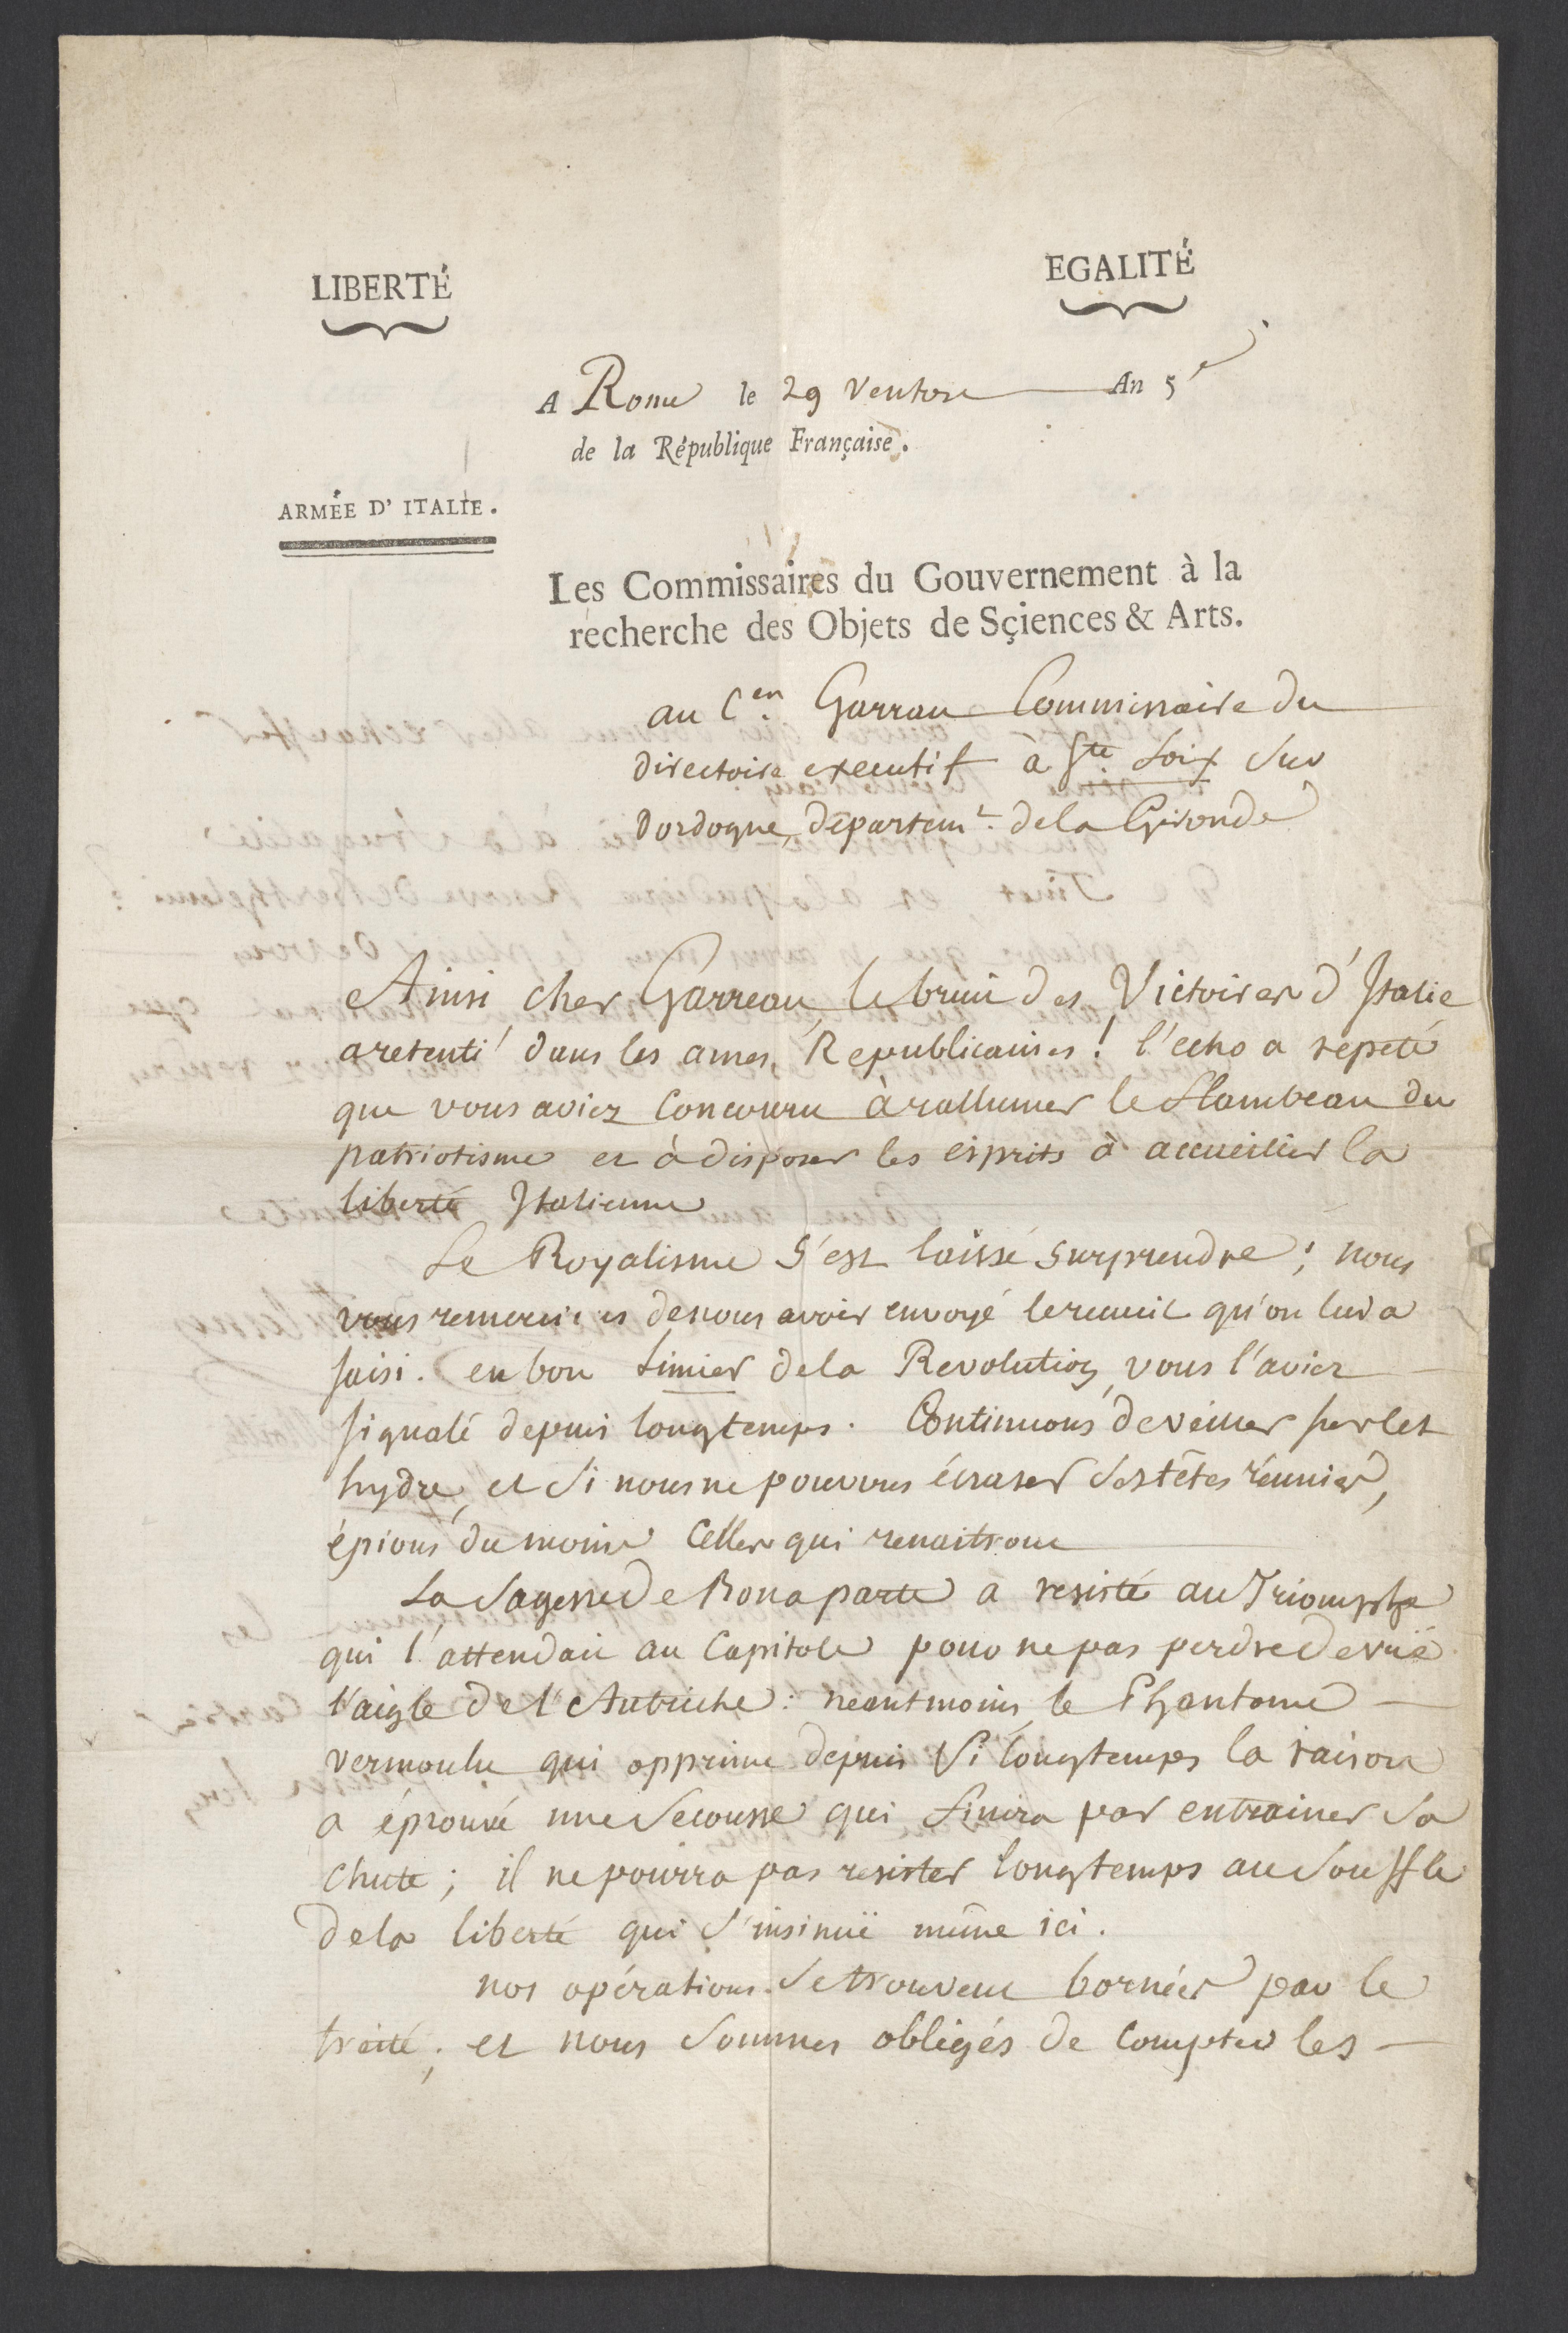 LIBERTÉ
EGALITÉ
A Rome le 29 Ventose An 5e
de la République Française.
ARMÉE D' ITALIE.
Les Commissaires du Gouvernement à la
recherche des Objets de Sçiences & Arts.
au Cen. Garrau Commissaire du
directoire executif à Ste foix sur
Dordogne, departemt. dela Gironde
Ainsi cher Garreau, le bruit des Victoires d'Italie
a retenti dans les ames Republicaines! l'echo a repeté
que vous aviez concouru à rallumer le flambeau du
patriotisme et à disposer les esprits à accueillir la
liberté Italienne
Le Royalisme s'est laissé surprendre; nous
vous remercions de nous avoir envoyé le recueil qu'on lui a
saisi. en bon limier dela Revolution, vous l'aviez
signalé depuis longtemps. Continuons de veiller sur cet
hydre, et si nous ne pouvons écraser ses têtes réunies,
épions du moins celles qui renaitront
La sagesse de Bonaparte a resisté au Triomphe
qui l'attendait au Capitole pour ne pas perdre de vuë
l'aigle de l'Autriche: neantmoins, le Phantome
vermoulu qui opprime depuis si longtemps la raison
a éprouvé une secousse qui finira par entrainer sa
chute; il ne pourra pas resister longtemps au souffle
dela liberté qui s'insinuë même ici.
nos opérations se trouvent bornées par le
traité; et nous sommes obligés de compter les